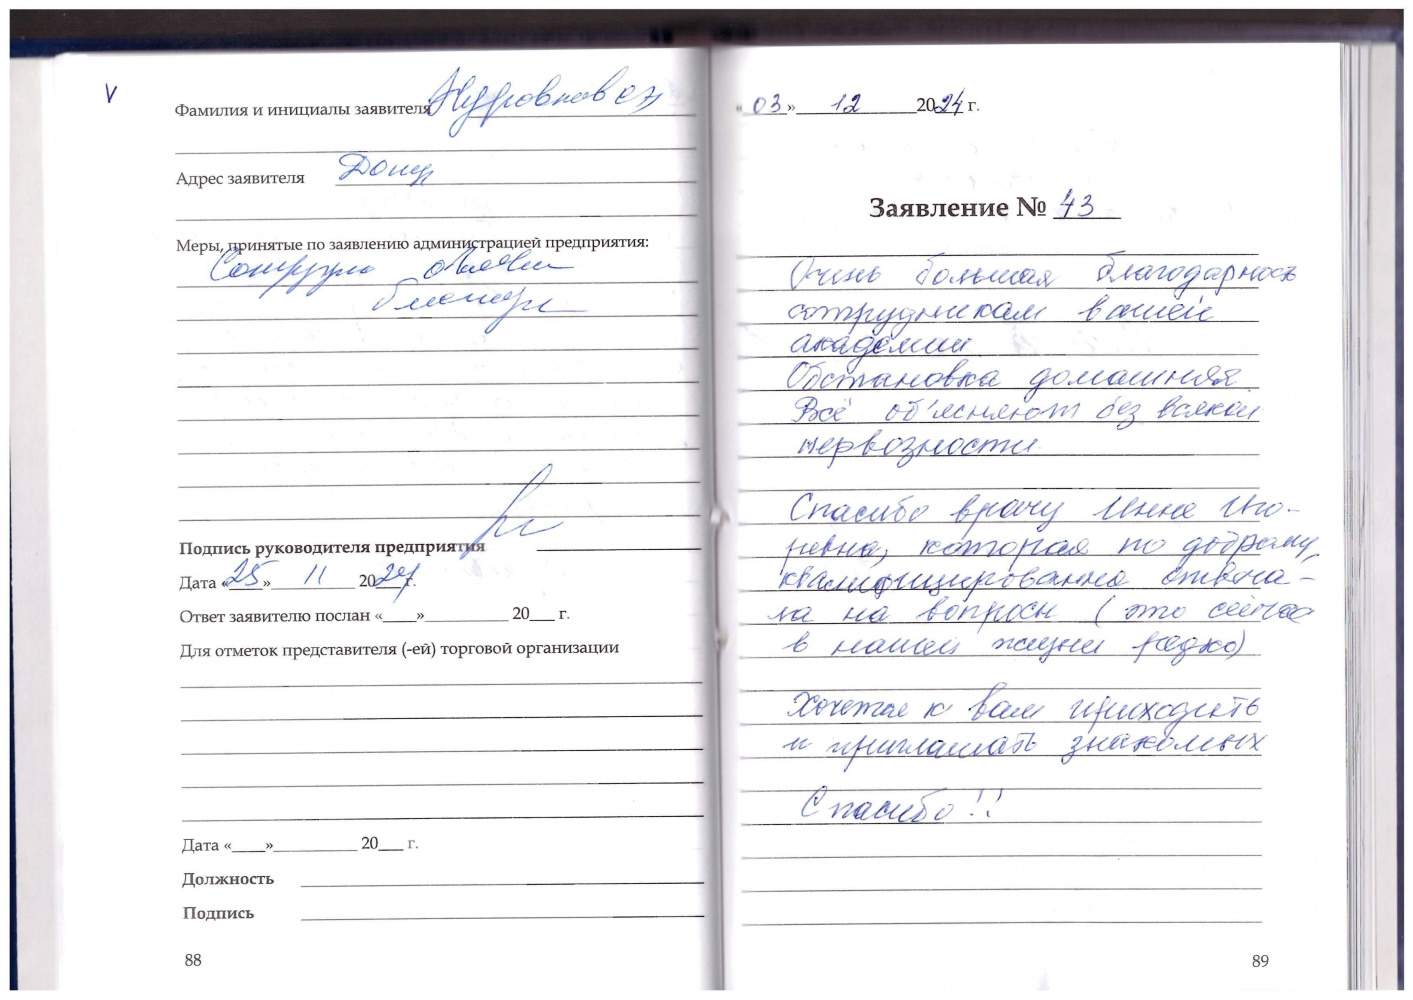 V
Фамилия и инициалы заявителя
Адрес заявителя
Меры, принятые по заявлению администрацией предприятия:
Подпись руководителя предприятия
Дата «25» 11 2024 г.
Ответ заявителю послан «____»__________ 20___ г.
Для отметок представителя (-ей) торговой организации
Дата «____»__________ 20___ г.
Должность
Подпись
88
«03» 12 2024 г.
Заявление № 43
Очень большая благодарность
сотрудникам вашей
академии
Обстановка домашняя
Всё об'ясняют без всякой
нервозности
Спасибо врачу Инне Иго-
ревна, которая по доброму,
квалифицированно отвеча-
ла на вопросы (это сейчас
в нашей жизни редко)
Хочется к вам приходить
и приглашать знакомых
Спасибо!!
89